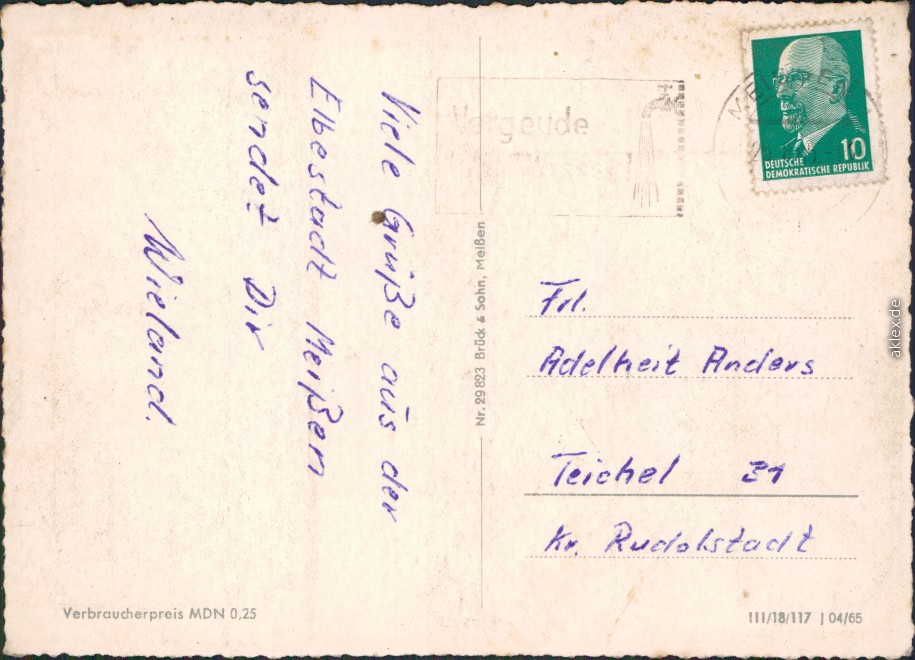 Viele Grüße aus der
Elbestadt Meißen
sendet Dir
Wieland.
Vergeude
10
DEUTSCHE
DEMOKRATISCHE REPUBLIK
Nr. 29823 Brück & Sohn, Meißen
Frl.
Adelheit Anders
Teichel 31
Kr. Rudolstadt
Verbraucherpreis MDN 0,25
III/18/117 J 04/65
aklex.de